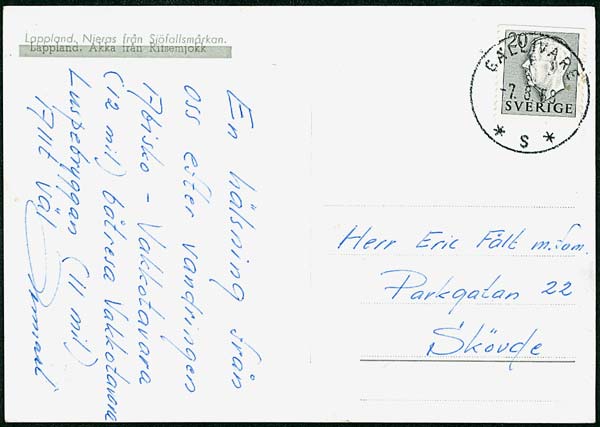 Lappland. Njeras från Sjöfallsmårkan.
Lappland. Akka från Ritsemjokk
20
SVERIGE
GÄLLIVARE
-7.8.58
* S *
En hälsning från
oss efter vandringen
Abisko - Vakkotavara
(12 mil) båtresa Vakkotavara
Luspebryggan (11 mil)
Allt väl
Herr Eric Fält m. fam.
Parkgatan 22
Skövde